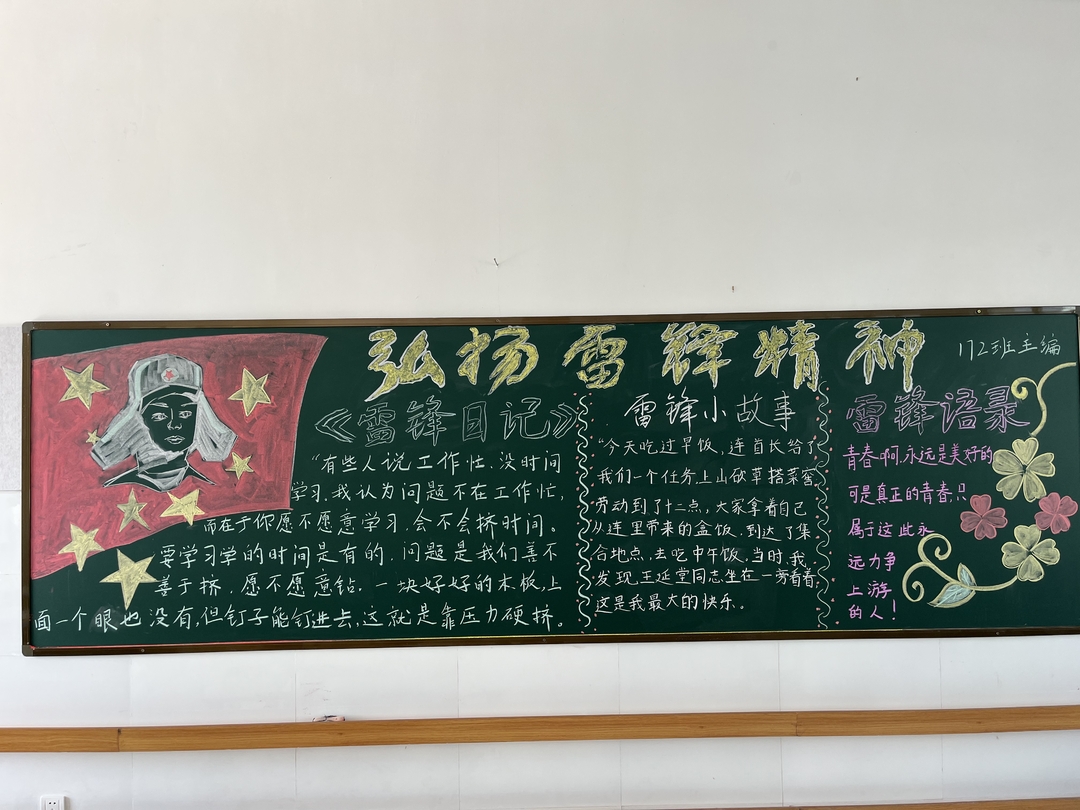 弘扬雷锋精神
172班主编
《雷锋日记》
“有些人说工作忙、没时间
学习.我认为问题不在工作忙,
而在于你愿不愿意学习.会不会挤时间。
要学习学的时间是有的.问题是我们善不
善于挤.愿不愿意钻.一块好好的木板,上
面一个眼也没有,但钉子能钉进去,这就是靠压力硬挤。
雷锋小故事
“今天吃过早饭,连首长给了
我们一个任务上山砍草搭菜窖
劳动到了十二点,大家拿着自己
从连里带来的盒饭.到达了集
合地点.去吃中午饭.当时.我
发现王延堂同志坐在一旁看着
这是我最大的快乐.
雷锋语录
青春啊,永远是美好的
可是真正的青春,只
属于这些永
远力争
上游
的人!